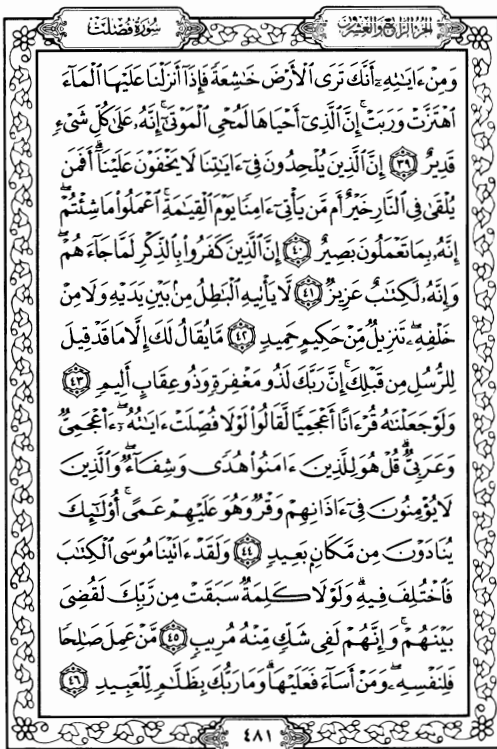 الجزء الرابع والعشرون
سورة فصلت
وَمِنْ ءَايَٰتِهِۦٓ أَنَّكَ تَرَى ٱلْأَرْضَ خَٰشِعَةً فَإِذَآ أَنزَلْنَا عَلَيْهَا ٱلْمَآءَ
ٱهْتَزَّتْ وَرَبَتْ ۚ إِنَّ ٱلَّذِىٓ أَحْيَاهَا لَمُحْىِ ٱلْمَوْتَىٰٓ ۚ إِنَّهُۥ عَلَىٰ كُلِّ شَىْءٍ
قَدِيرٌ ﴿٣٩﴾ إِنَّ ٱلَّذِينَ يُلْحِدُونَ فِىٓ ءَايَٰتِنَا لَا يَخْفَوْنَ عَلَيْنَآ ۗ أَفَمَن
يُلْقَىٰ فِى ٱلنَّارِ خَيْرٌ أَم مَّن يَأْتِىٓ ءَامِنًا يَوْمَ ٱلْقِيَٰمَةِ ۚ ٱعْمَلُوا۟ مَا شِئْتُمْ ۖ
إِنَّهُۥ بِمَا تَعْمَلُونَ بَصِيرٌ ﴿٤٠﴾ إِنَّ ٱلَّذِينَ كَفَرُوا۟ بِٱلذِّكْرِ لَمَّا جَآءَهُمْ ۖ
وَإِنَّهُۥ لَكِتَٰبٌ عَزِيزٌ ﴿٤١﴾ لَّا يَأْتِيهِ ٱلْبَٰطِلُ مِنۢ بَيْنِ يَدَيْهِ وَلَا مِنْ
خَلْفِهِۦ ۖ تَنزِيلٌ مِّنْ حَكِيمٍ حَمِيدٍ ﴿٤٢﴾ مَّا يُقَالُ لَكَ إِلَّا مَا قَدْ قِيلَ
لِلرُّسُلِ مِن قَبْلِكَ ۚ إِنَّ رَبَّكَ لَذُو مَغْفِرَةٍ وَذُو عِقَابٍ أَلِيمٍ ﴿٤٣﴾
وَلَوْ جَعَلْنَٰهُ قُرْءَانًا أَعْجَمِيًّا لَّقَالُوا۟ لَوْلَا فُصِّلَتْ ءَايَٰتُهُۥٓ ۖ ءَا۬عْجَمِىٌّ
وَعَرَبِىٌّ ۗ قُلْ هُوَ لِلَّذِينَ ءَامَنُوا۟ هُدًى وَشِفَآءٌ ۖ وَٱلَّذِينَ
لَا يُؤْمِنُونَ فِىٓ ءَاذَانِهِمْ وَقْرٌ وَهُوَ عَلَيْهِمْ عَمًى ۚ أُو۟لَٰٓئِكَ
يُنَادَوْنَ مِن مَّكَانٍۭ بَعِيدٍ ﴿٤٤﴾ وَلَقَدْ ءَاتَيْنَا مُوسَى ٱلْكِتَٰبَ
فَٱخْتُلِفَ فِيهِ ۗ وَلَوْلَا كَلِمَةٌ سَبَقَتْ مِن رَّبِّكَ لَقُضِىَ
بَيْنَهُمْ ۚ وَإِنَّهُمْ لَفِى شَكٍّ مِّنْهُ مُرِيبٍ ﴿٤٥﴾ مَّنْ عَمِلَ صَٰلِحًا
فَلِنَفْسِهِۦ ۖ وَمَنْ أَسَآءَ فَعَلَيْهَا ۗ وَمَا رَبُّكَ بِظَلَّٰمٍ لِّلْعَبِيدِ ﴿٤٦﴾
٤٨١